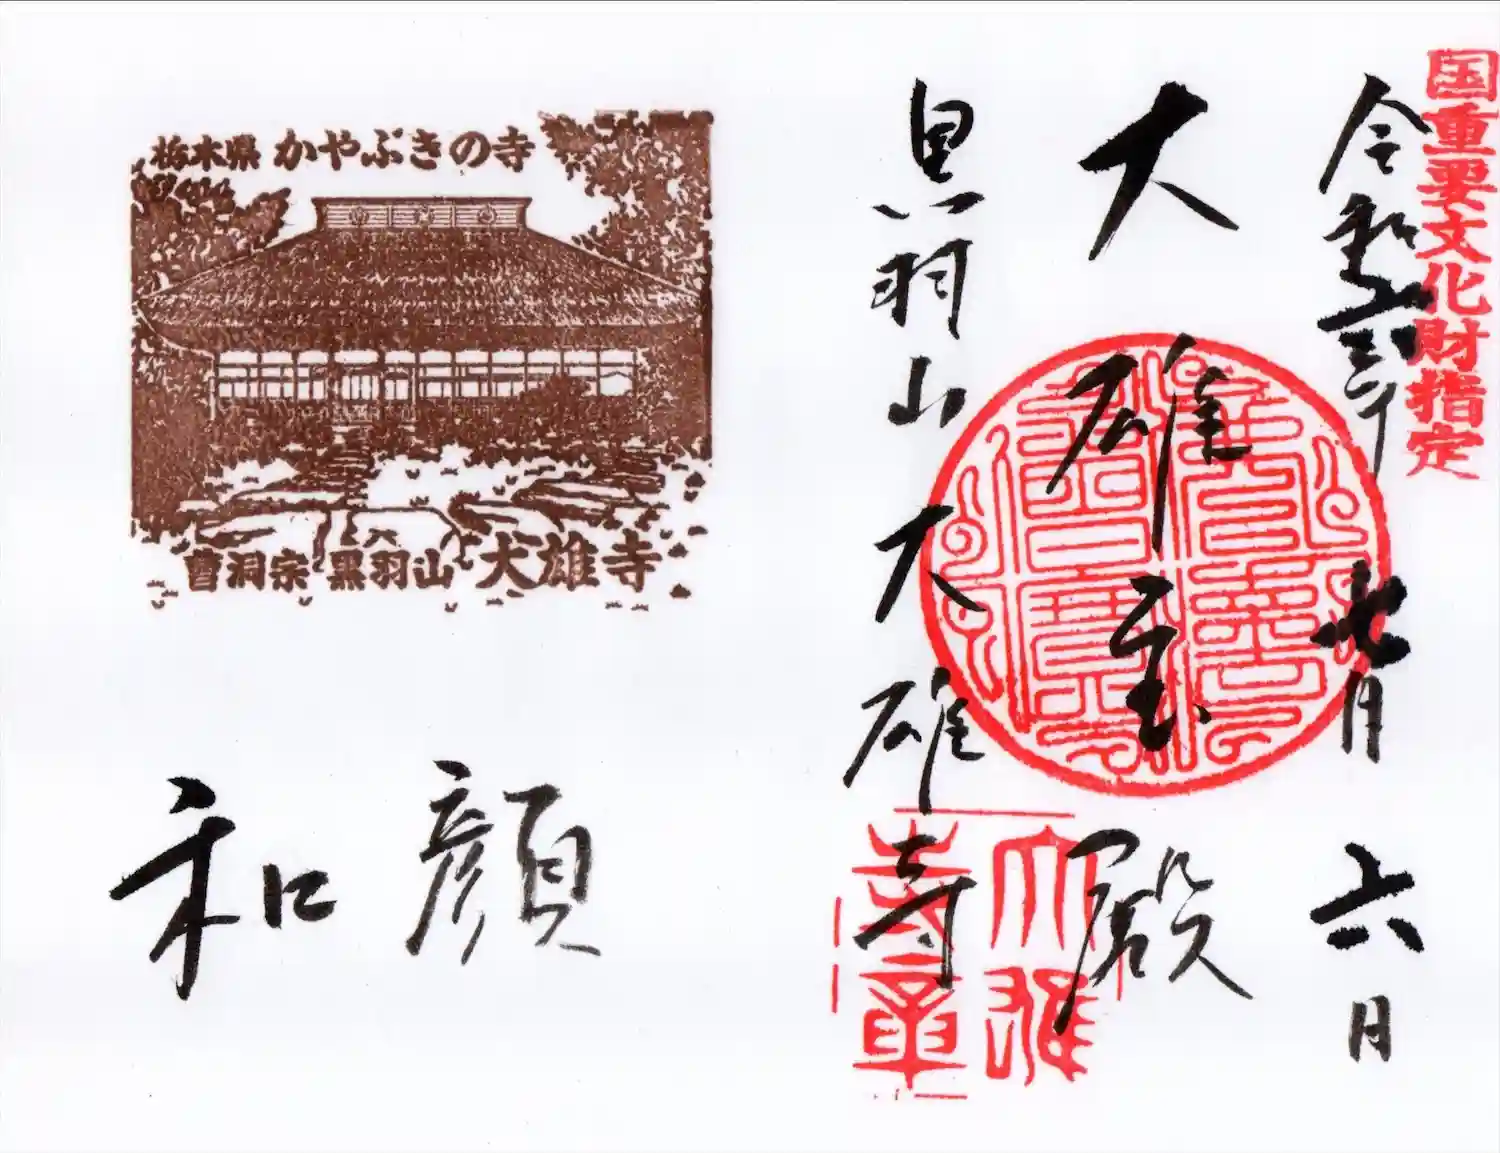 国重要文化財指定
令和
七月六日
大雄宝殿
黒羽山大雄寺
大雄
寺章
栃木県 かやぶきの寺
曹洞宗 黒羽山 大雄寺
和顔